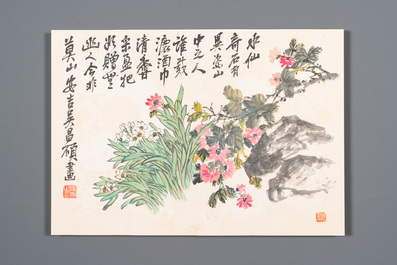 水仙
奇石有
異姿山
中之人
誰敢
漉酒巾
清香
采盈把
欲贈無
幽人今非
莫山安吉吳昌碩畫